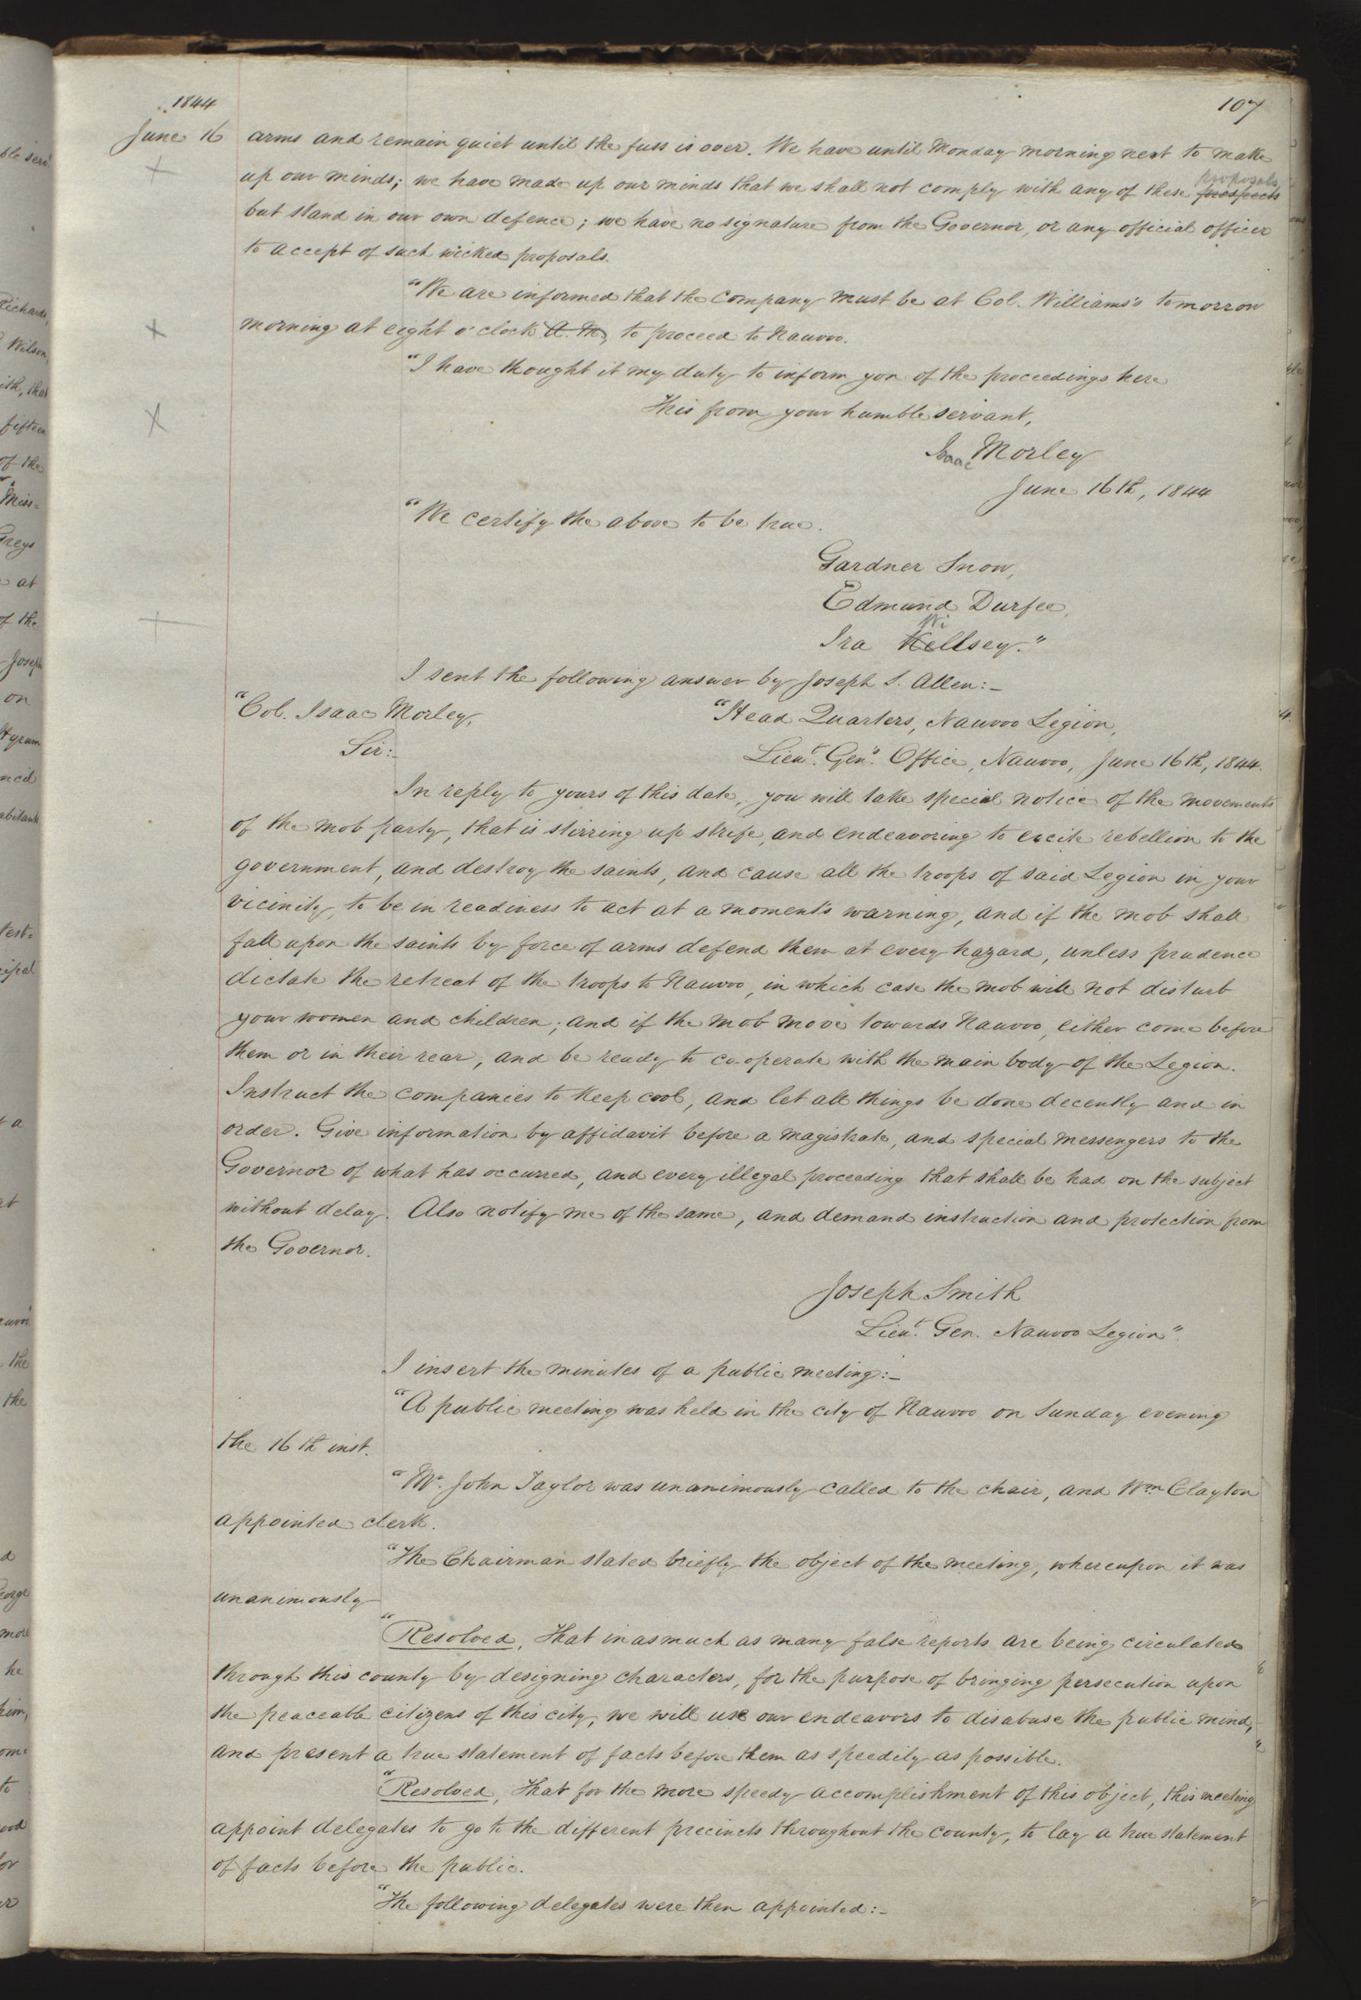 1844
107
June 16 arms and remain quiet until the fuss is over. We have until Monday morning next to make
up our minds; we have made up our minds that we shall not comply with any of these prospects proposals
but stand in our own defence; we have no signature from the Governor, or any official officer
to accept of such wicked proposals.
"We are informed that the company must be at Col. Williams's tomorrow
morning at eight o'clock A.M. to proceed to Nauvoo.
"I have thought it my duty to inform you of the proceedings here
This from your humble servant,
Isaac Morley
June 16th, 1844
"We certify the above to be true.
Gardner Snow,
Edmund Durfee,
Wi
Ira Kellsey."
I sent the following answer by Joseph S. Allen:–
"Col. Isaac Morley, "Head Quarters, Nauvoo Legion,
Sir:– Lieut. Genl. Office, Nauvoo, June 16th, 1844.
In reply to yours of this date, you will take special notice of the movements
of the mob party, that is stirring up strife, and endeavoring to excite rebellion to the
government, and destroy the saints, and cause all the troops of said Legion in your
vicinity, to be in readiness to act at a moment's warning, and if the mob shall
fall upon the saints by force of arms defend them at every hazard, unless prudence
dictate the retreat of the troops to Nauvoo, in which case the mob will not disturb
your women and children; and if the mob move towards Nauvoo, either come before
them or in their rear, and be ready to co-operate with the main body of the Legion.
Instruct the companies to keep cool, and let all things be done decently and in
order. Give information by affidavit before a magistrate, and special messengers to the
Governor of what has occurred, and every illegal proceeding that shall be had on the subject
without delay. Also notify me of the same, and demand instruction and protection from
the Governor.
Joseph Smith
Lieut. Gen. Nauvoo Legion".
I insert the minutes of a public meeting:–
"A public meeting was held in the city of Nauvoo on Sunday evening
the 16th inst.
"Mr. John Taylor was unanimously called to the chair, and Wm Clayton
appointed clerk.
"The Chairman stated briefly the object of the meeting, whereupon it was
unanimously
"Resolved, That inasmuch as many false reports are being circulated
through this county by designing characters, for the purpose of bringing persecution upon
the peaceable citizens of this city, we will use our endeavors to disabuse the public mind,
and present a true statement of facts before them as speedily as possible.
"Resolved, That for the more speedy accomplishment of this object, this meeting
appoint delegates to go to the different precincts throughout the county, to lay a true statement
of facts before the public.
"The following delegates were then appointed:–